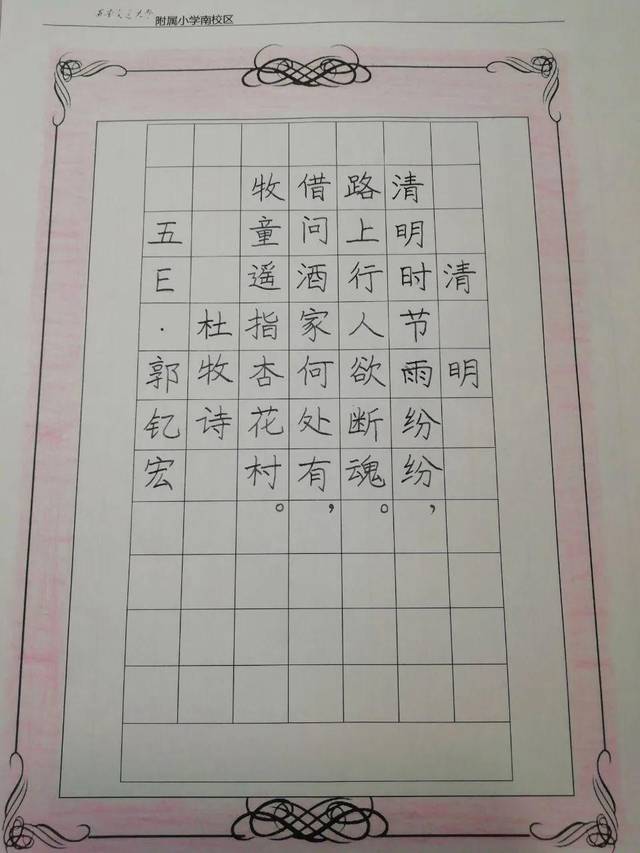 西南交通大学附属小学南校区
清明
清明时节雨纷纷，
路上行人欲断魂。
借问酒家何处有，
牧童遥指杏花村。
杜牧诗
五E·郭钇宏